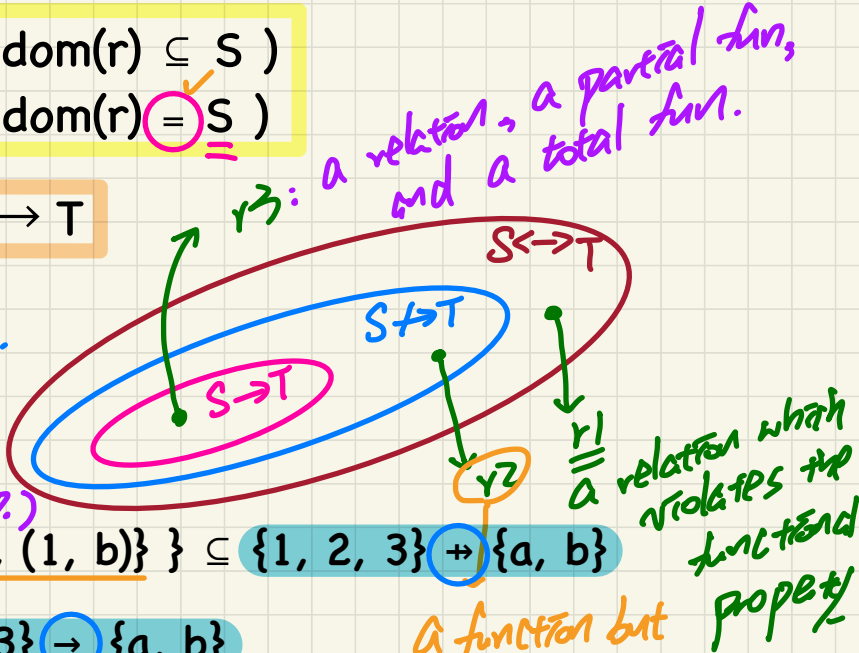 dom(r) ⊆ S )
dom(r) = S )
→ T
r3: a relation, a partial fun,
and a total fun.
S<->T
S⇸T
S→T
r1
r2
a relation which
violates the
functional
property
?)
, (1, b)} } ⊆ {1, 2, 3} ⇸ {a, b}
3} → {a, b}
a function but